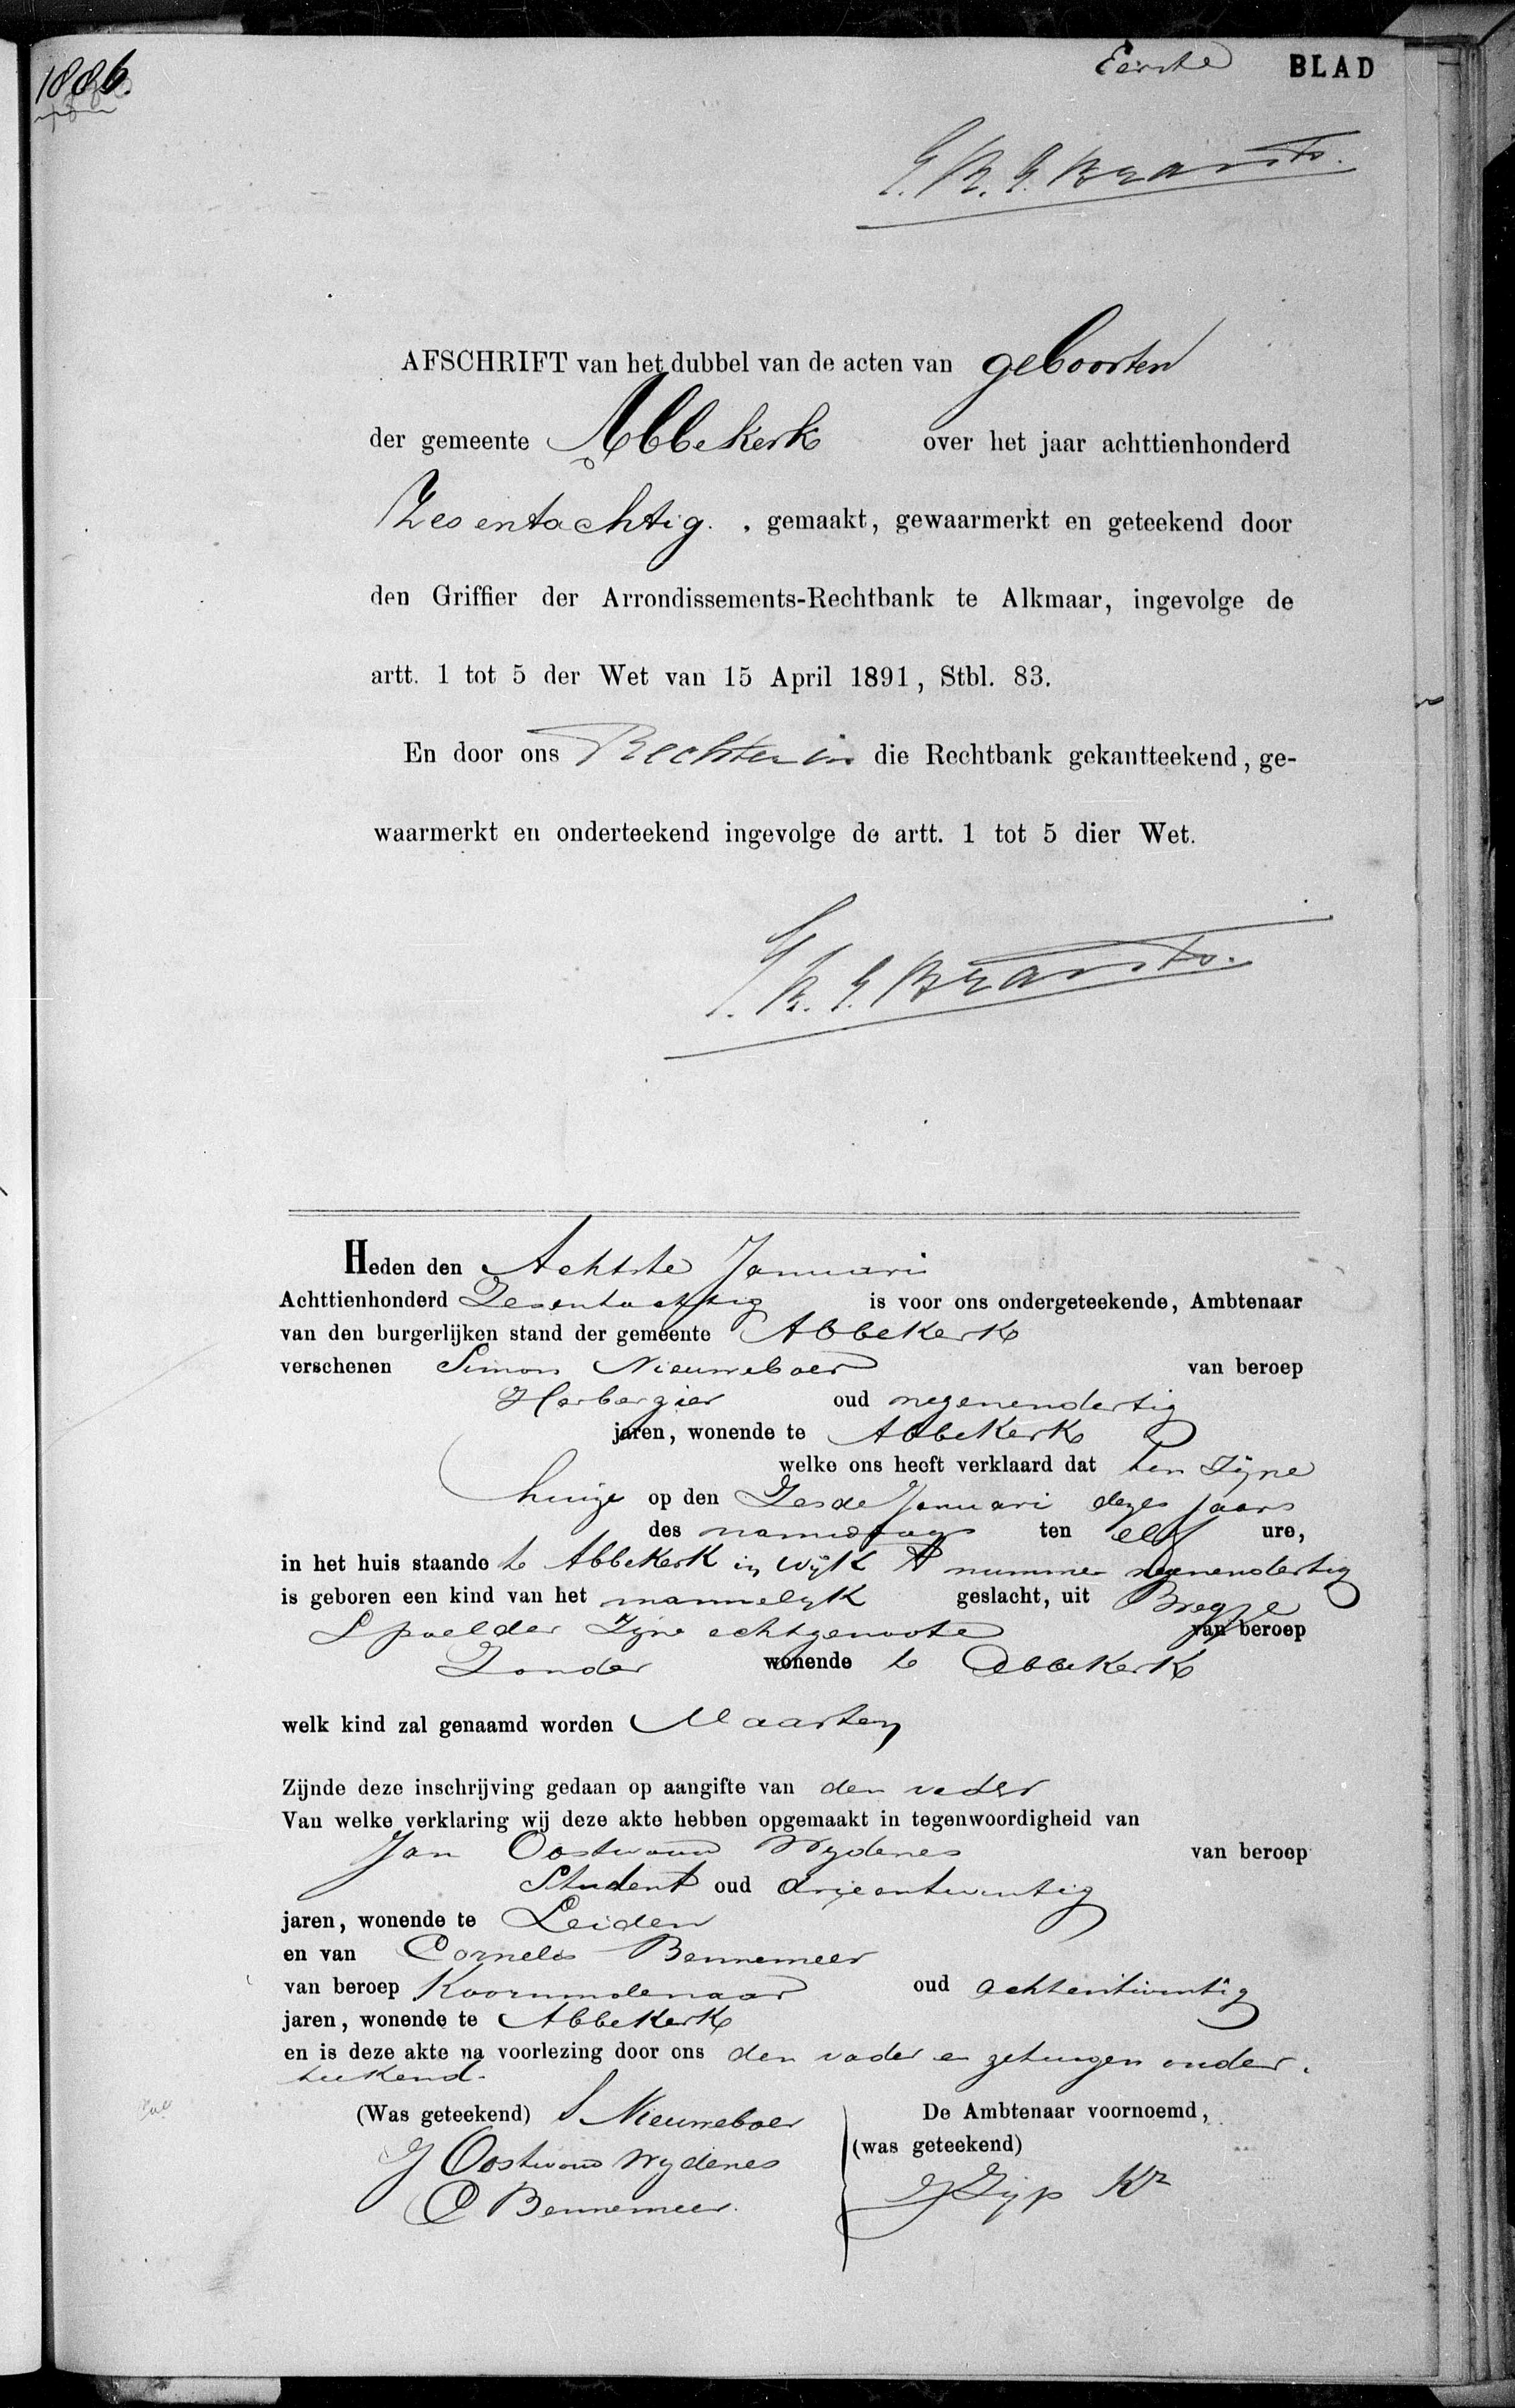 1886.
Eerste BLAD
AFSCHRIFT van het dubbel van de acten van geboorten
der gemeente Abbekerk over het jaar achttienhonderd
Zesentachtig. , gemaakt, gewaarmerkt en geteekend door
den Griffier der Arrondissements-Rechtbank te Alkmaar, ingevolge de
artt. 1 tot 5 der Wet van 15 April 1891, Stbl. 83.
En door ons Rechter in die Rechtbank gekantteekend, ge-
waarmerkt en onderteekend ingevolge de artt. 1 tot 5 dier Wet.
Heden den Achtste Januari
Achttienhonderd Zesentachtig is voor ons ondergeteekende, Ambtenaar
van den burgerlijken stand der gemeente Abbekerk
verschenen Simon Nieuweboer van beroep
Herbergier oud negenendertig
jaren, wonende te Abbekerk
welke ons heeft verklaard dat ten zijne
huize op den Zesde Januari dezes jaars
des namiddags ten elf ure,
in het huis staande te Abbekerk in wijk A nummer negenendertig
is geboren een kind van het mannelijk geslacht, uit Bregje
Spaelder zijne echtgenoote van beroep
Zonder wonende te Abbekerk
welk kind zal genaamd worden Maarten
Zijnde deze inschrijving gedaan op aangifte van den vader
Van welke verklaring wij deze akte hebben opgemaakt in tegenwoordigheid van
Jan Oostwoud Wijdenes van beroep
Student oud drieentwintig
jaren, wonende te Leiden
en van Cornelis Bennemeer
van beroep Koornmolenaar oud achtentwintig
jaren, wonende te Abbekerk
en is deze akte na voorlezing door ons den vader en getuigen onder.
teekend.
(Was geteekend) S Nieuweboer De Ambtenaar voornoemd,
J Oostwoud Wijdenes (was geteekend)
C Bennemeer. J Zijp Kz